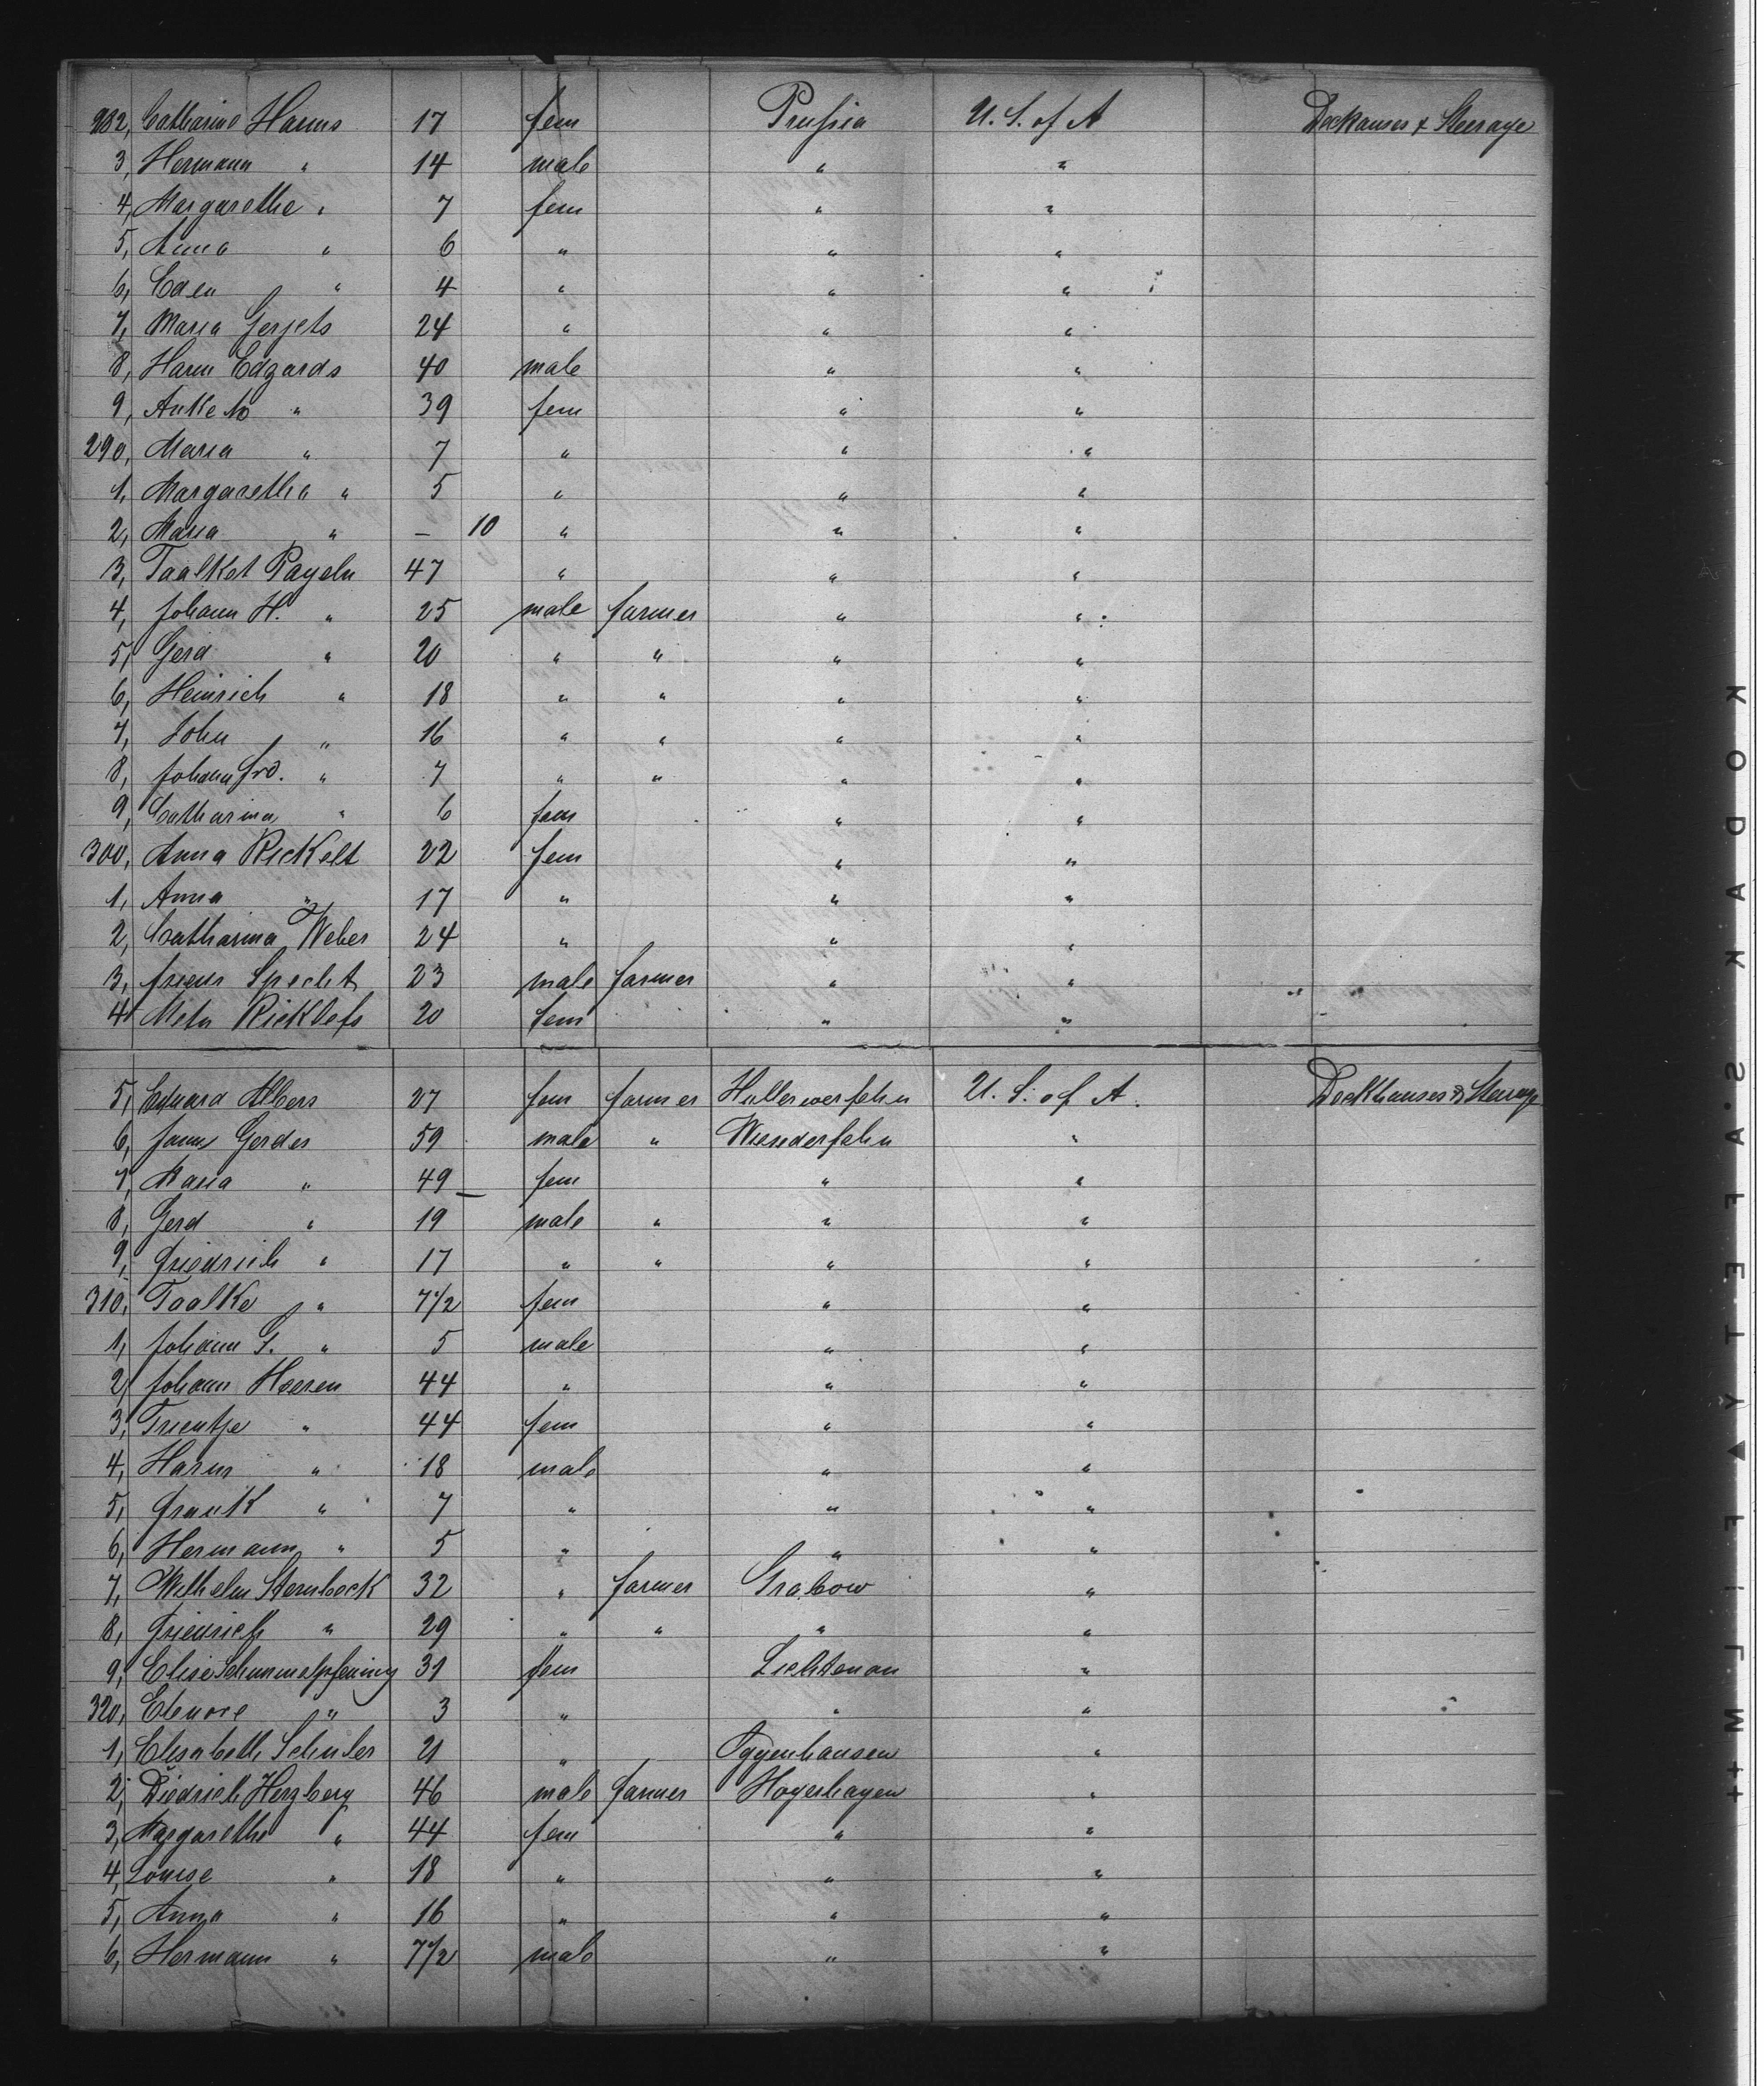 282, Catharine Harms 17 fem Prussia U. S. of A Deckhauses & Steerage
3, Hermann " 14 male " "
4, Margarethe " 7 fem " "
5, Anna " 6 " " "
6, Eden " 4 " " "
7, Maria Gerjets 24 " " "
8, Harm Edzards 40 male " "
9, Anke " 39 fem " "
290, Maria " 7 " " "
1, Margaretha " 5 " " "
2, Maria " – 10 " " "
3, Taalket Payeln 47 " " "
4, Johann H. " 25 male farmer " "
5, Gerd " 20 " " " "
6, Heinrich " 18 " " " "
7, John " 16 " " " "
8, Johann Frd. " 7 " " " "
9, Catharina " 6 fem " "
300, Anna Rickelt 22 fem " "
1, Anna " 17 " " "
2, Catharina Weber 24 " " "
3, Specht 23 male farmer " "
4, Meta Ricklefs 20 fem " "
5, Eduard Albers 27 fem farmer Hullerwerfehn U. S. of A. Deckhauses & Steerage
6, Janns Gerdes 59 male " Wunderfehn "
7, Maria " 49 – fem " "
8, Gerd " 19 male " " "
9, Friedrich " 17 " " " "
310, Taalke " 7 1/2 fem " "
1, Johann G. " 5 male " "
2, Johann Heeren 44 " " "
3, Trientje " 44 fem " "
4, Harm " 18 male " "
5, Frank " 7 " " "
6, Hermann " 5 " " "
7, Wilhelm Sternbock 32 " farmer Grabow "
8, Friedrich " 29 " " " "
9, Elise Schummelpfenning 31 fem Lichtenau "
320, Elenore " 3 " " "
1, Elisabeth Schuler 21 " Oggenhausen "
2, Diedrich Herzberg 46 male farmer Hogenhagen "
3, Margarethe " 44 fem " "
4, Louise " 18 " " "
5, Anna " 16 " " "
6, Hermann " 7 1/2 male " "
KODAK·SAFETY▲FILM++